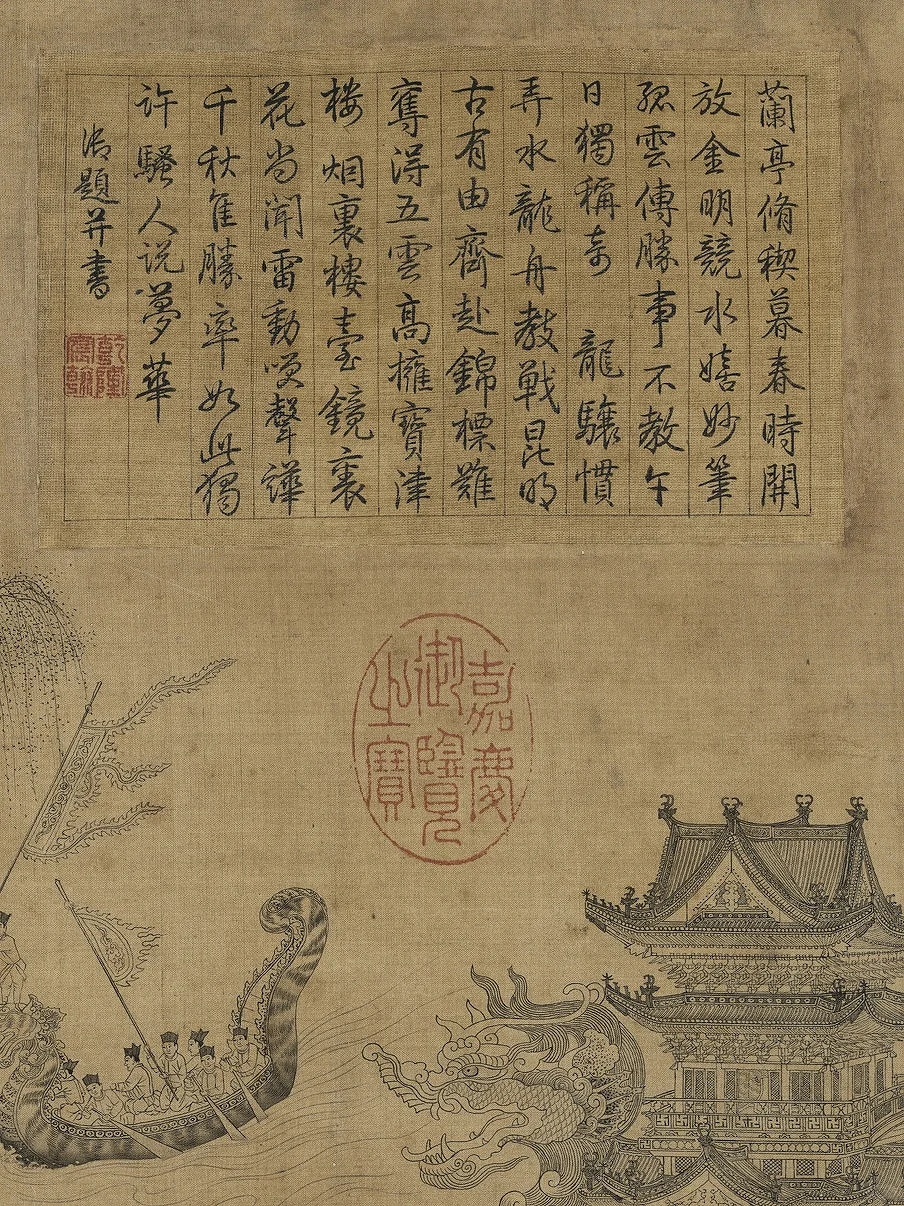 蘭亭脩稧暮春時開
放金明競水嬉妙筆
孤雲傳勝事不教午
日獨稱奇　龍驤慣
弄水龍舟教戰昆明
古有由齊赴錦標難
奪得五雲高擁寶津
樓　烟裏樓臺鏡裏
花尚聞雷動咲聲譁
千秋佳勝率如此獨
許騷人説夢華
御題并書
乾隆
宸翰
嘉慶
御覽
之寶